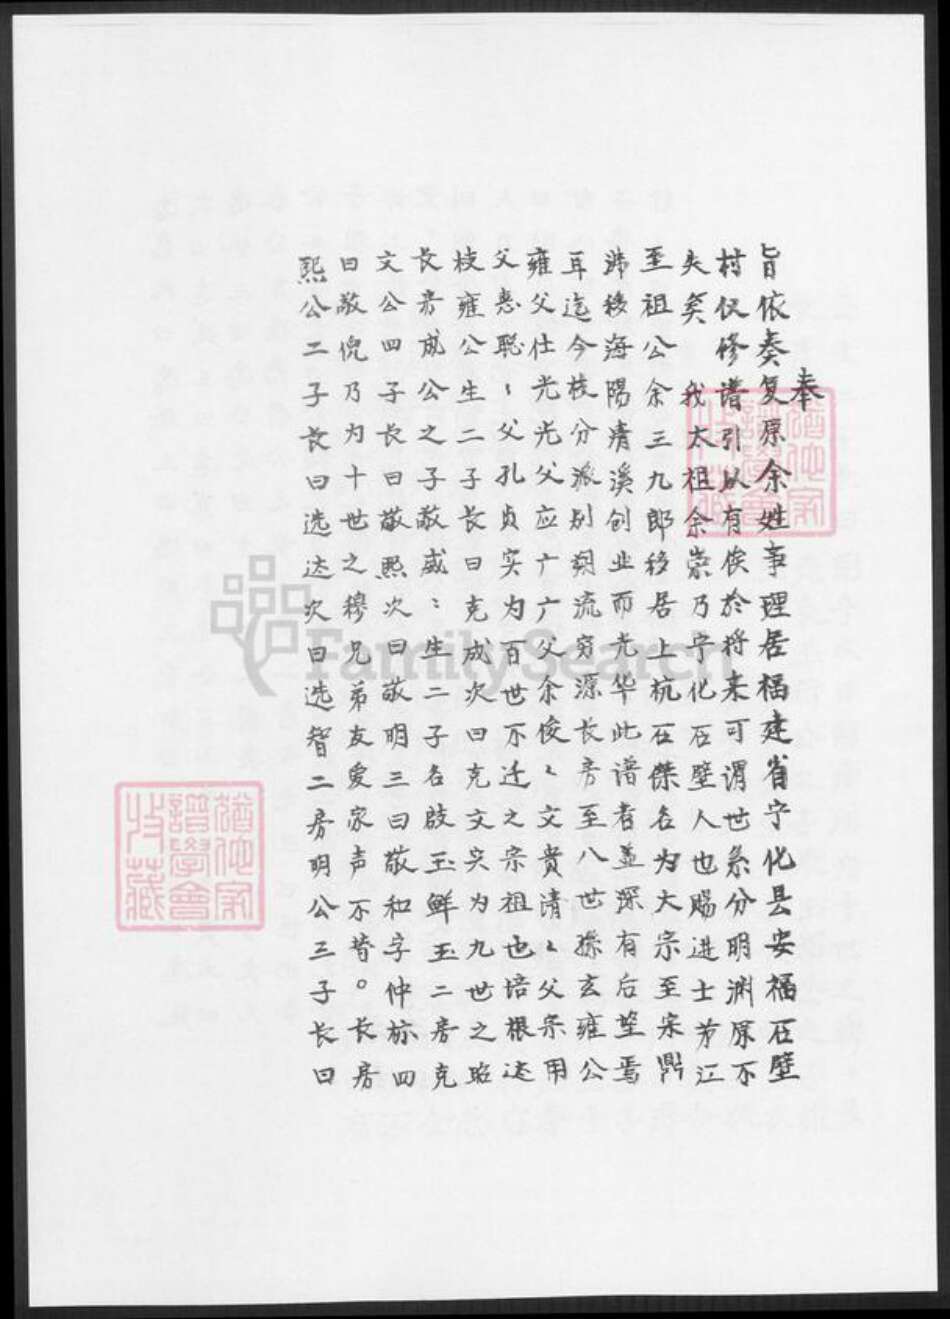 奉
旨依奏复原余姓事理居福建省宁化县安福石壁
村仅修谱引以有俟於将来可谓世系分明渊原不
失矣 我太祖余崇乃宁化石壁人也赐进士芳江
至祖公余三九郎移居上杭石傑名为大宗至宋鼎
沛移海陽清溪创业而光华此谱者並深有后望焉
耳迄今枝分派别朔流穷源长房至八世孫玄雍公
雍父仕光光父应广广父余俊俊文贵清清父宗用
父惠聪聪父孔贞实为百世不迁之宗祖也培根达
枝雍公生二子长曰克成次曰克文实为九世之昭
长房成公之子敬威威生二子名啟玉鮮玉二房克
文公四子长曰敬熙次曰敬明三曰敬和字仲标四
曰敬倪乃为十世之穆兄弟友爱家声不替。长房
熙公二子长曰选达次曰选智二房明公三子长曰
猶他家
譜學會
收藏
猶他家
譜學會
收藏
FamilySearch